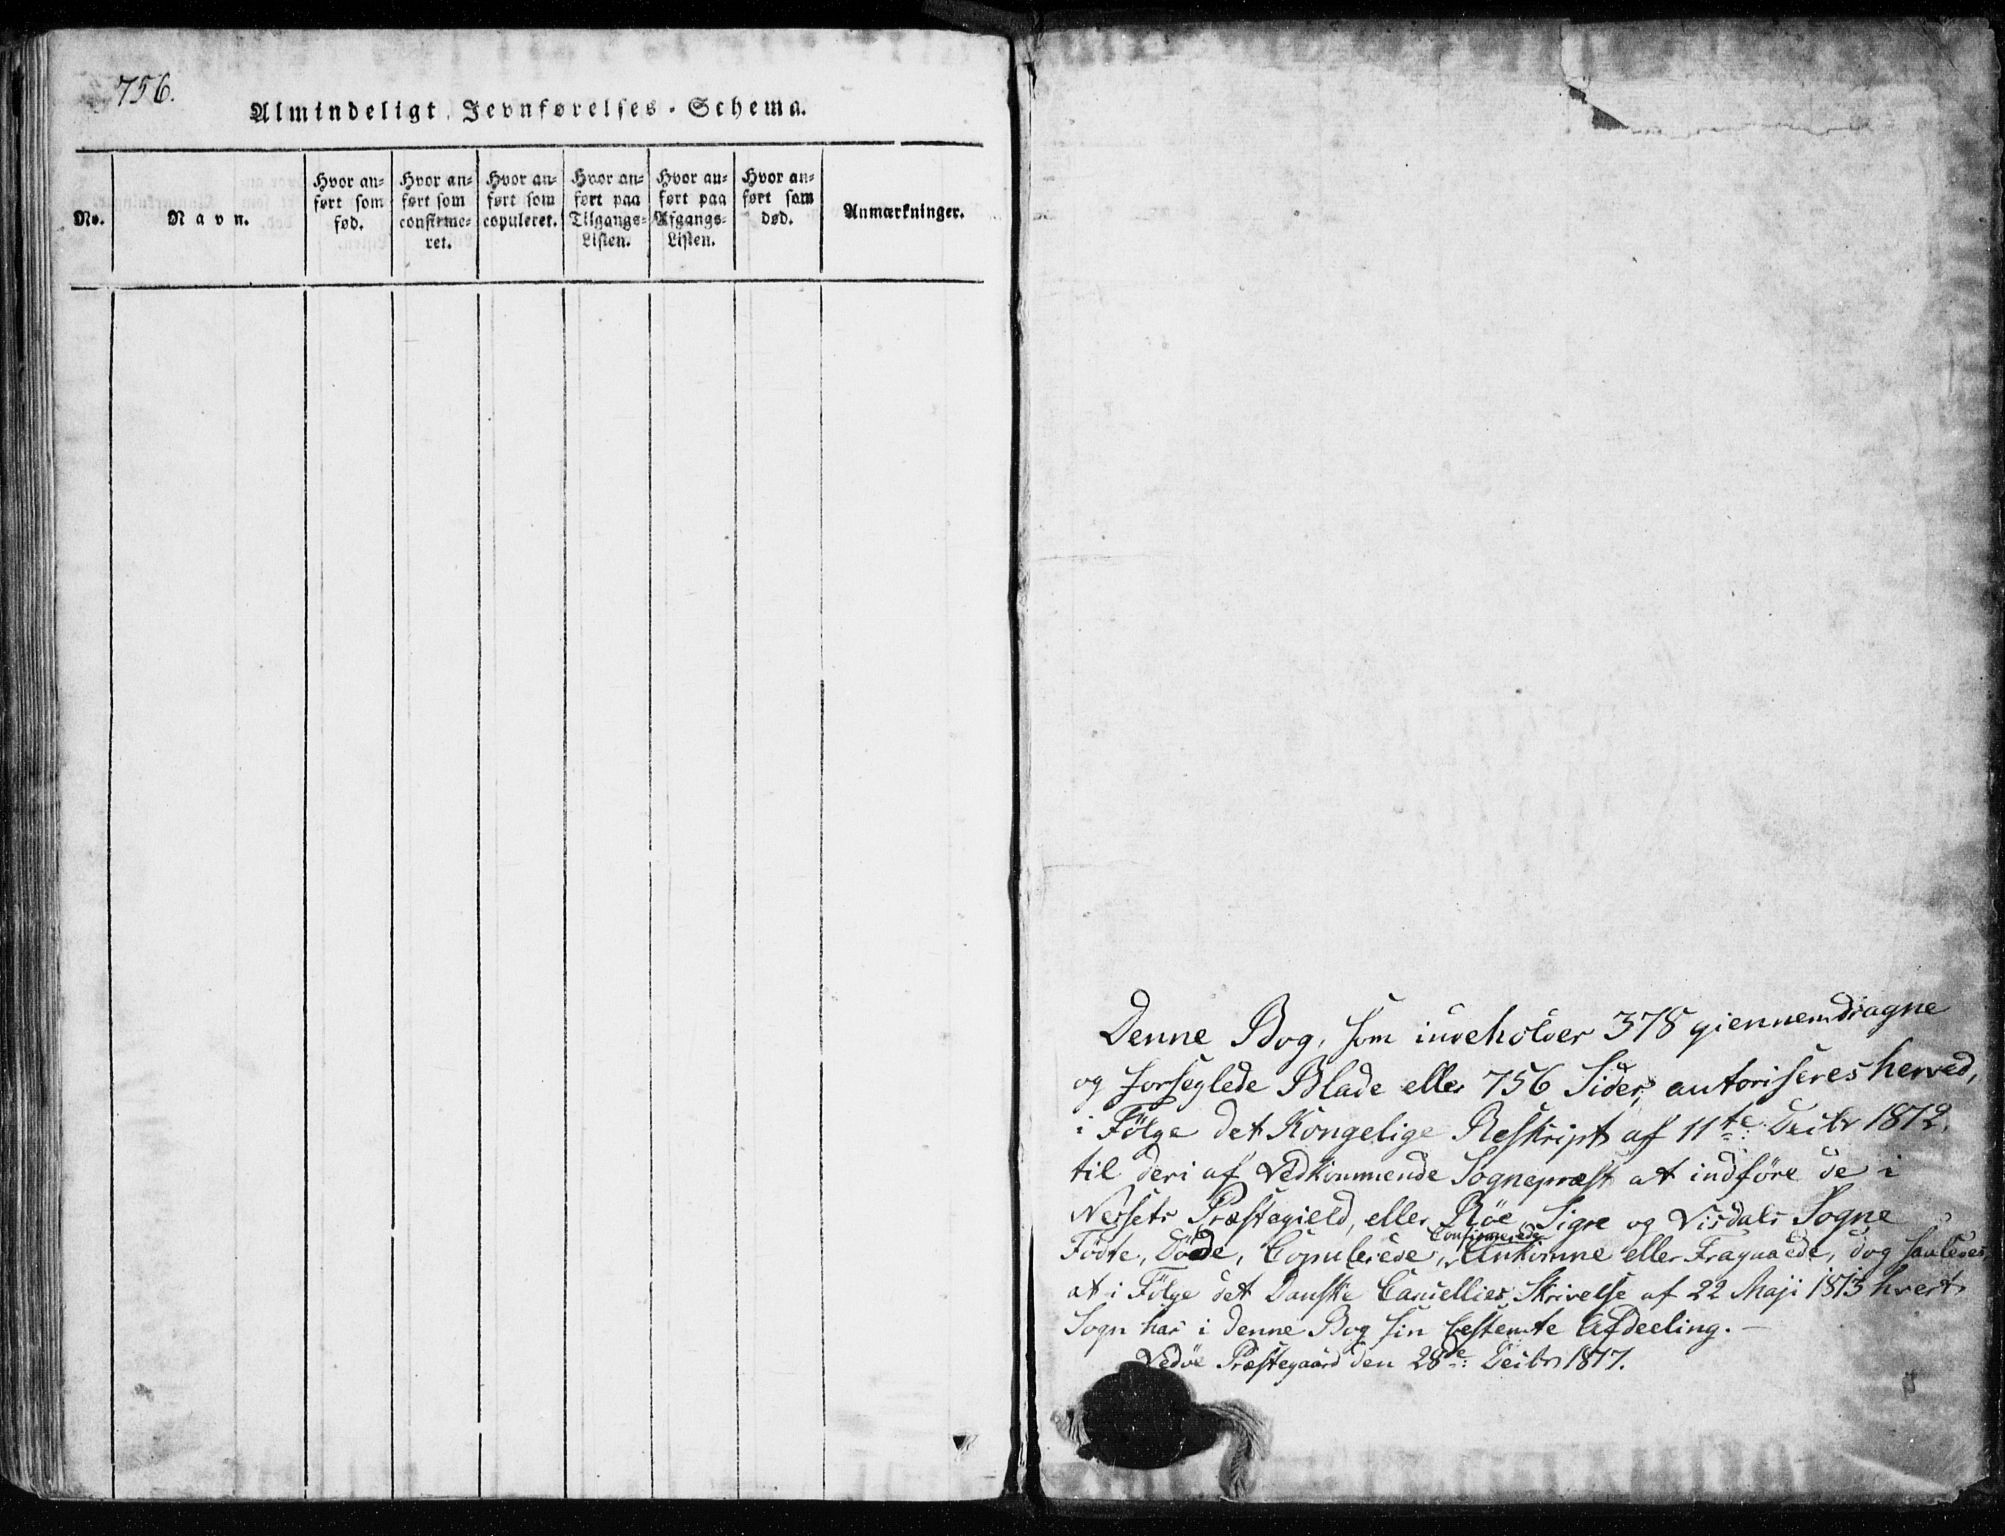 756.
Almindeligt Jevnførelses-Schema.
No.
Navn.
Hvor an-
ført som
fød.
Hvor an-
ført som
confirme-
ret.
Hvor an-
ført som
copuleret.
Hvor an-
ført paa
Tilgangs-
Listen.
Hvor an-
ført paa
Afgangs-
Listen.
Hvor an-
ført som
død.
Anmærkninger.
Denne Bog, som indeholder 378 giennemdragne
og forseglede Blade eller 756 Sider, autoriseres herved,
i Fölge det Kongelige Reskript af 11te Decbr 1812,
til deri af Vedkommende Sognepræst at indföre de i
Nessets Præstegield, eller Röe, Sigre og Visdals Sogne
Confirmerede
Födte, Döde, Copulerede, Ankomne eller Fragaaede, dog saaledes
at i Fölge det Danske Cancellies Skrivelse af 22 Maji 1813 hvert
Sogn har i denne Bog sin bestemte Afdeeling. —
Vedöe Præstegaard den 28de: Decbr 1817.